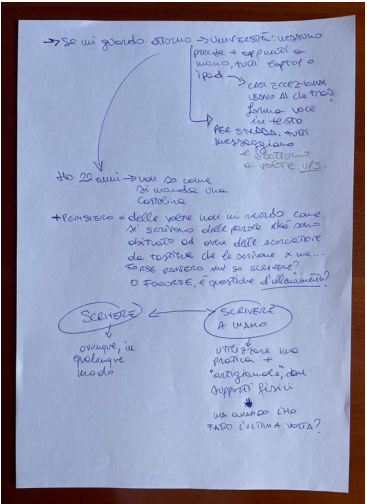 → Se mi guardo attorno → UNIVERSITÀ: nessuno
prende + appunti a
mano, tutti laptop o
ipad
→ CASI ECCEZIONALI
USANO AI che trasforma
voce
in testo
PER STRADA, tutti
messaggiano
e
a volte
Ho 22 anni → non so come
si manda una
cartolina
+ PENSIERO = delle volte non mi ricordo come
si scrivono delle parole xké sono
abituato ad avere delle scorciatoie
da tastiera che le scrivono x me...
FORSE DAVVERO non so scrivere?
O FOORSE, è questione d'allenamento?
SCRIVERE ↔ SCRIVERE
A MANO
ovunque, in
qualunque
modo
utilizzare una
pratica +
"artigianale", con
supporti fisici
ma quando l'ho
FATTO L'ULTIMA VOLTA?